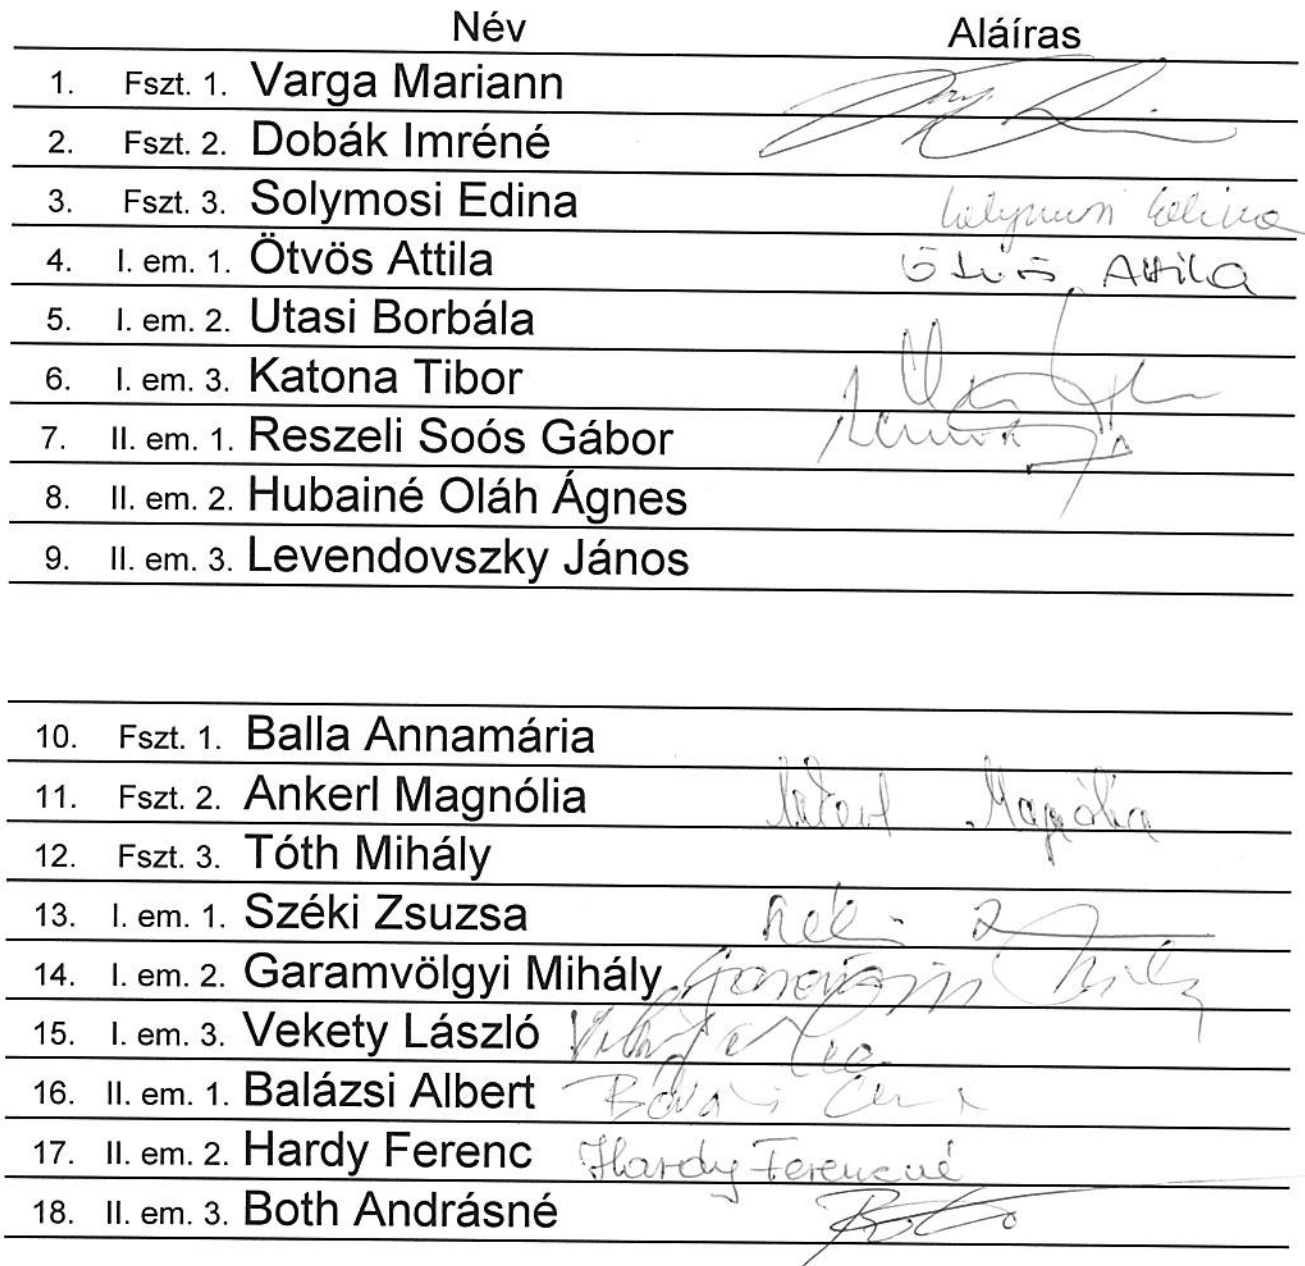 Név Aláíras
1. Fszt. 1. Varga Mariann
2. Fszt. 2. Dobák Imréné
3. Fszt. 3. Solymosi Edina Solymosi Edina
4. I. em. 1. Ötvös Attila Ötvös Attila
5. I. em. 2. Utasi Borbála
6. I. em. 3. Katona Tibor
7. II. em. 1. Reszeli Soós Gábor
8. II. em. 2. Hubainé Oláh Ágnes
9. II. em. 3. Levendovszky János
10. Fszt. 1. Balla Annamária
11. Fszt. 2. Ankerl Magnólia Ankerl Magnólia
12. Fszt. 3. Tóth Mihály
13. I. em. 1. Széki Zsuzsa
14. I. em. 2. Garamvölgyi Mihály
15. I. em. 3. Vekety László
16. II. em. 1. Balázsi Albert
17. II. em. 2. Hardy Ferenc Hardy Ferencné
18. II. em. 3. Both Andrásné